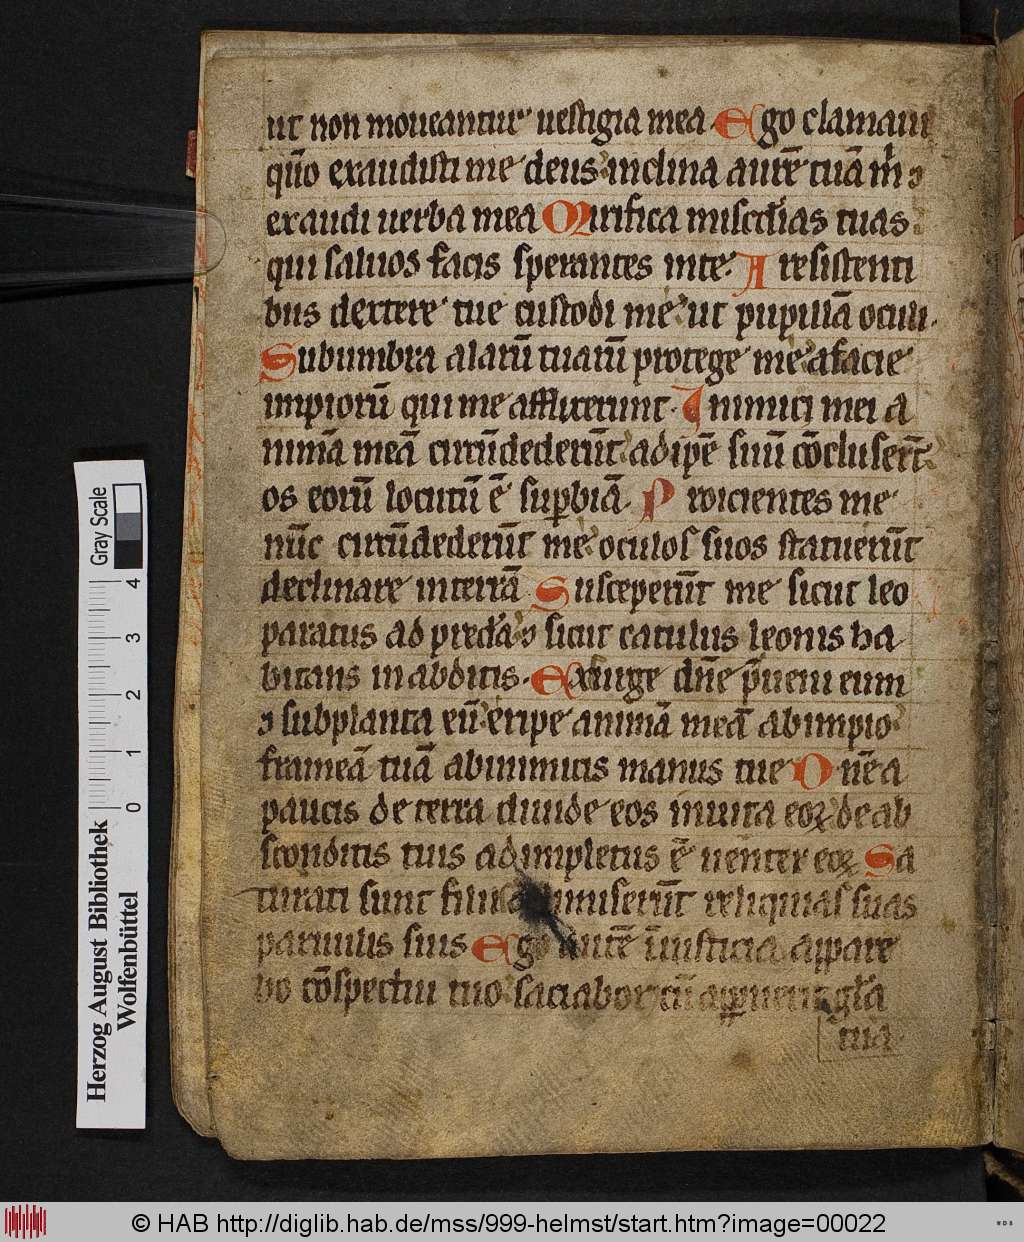 ut non moueantur uestigia mea. Ego clamaui
qm̄o exaudisti me deus inclina aurē tuā m̄ ⁊
exaudi uerba mea Mirifica miscdias tuas
qui saluos facis sperantes inte. A resistenti
bus dextere tue custodi me ut pupillā oculi.
Subumbra alarū tuarū protege me afacie
impiorū qui me afflixerunt. Inimici mei a
nimā meā circūdederūt adipē suū cōcluserūt
os eorū locutū ē supbiā. Proicientes me
nūc circūdederūt me oculos suos statuerūt
declinare interrā Susceperūt me sicut leo
paratus ad predā ⁊ sicut catulus leonis ha
bitans in abditis. Exurge dn̄e pueni eum
⁊ subplanta eū eripe animā meā abimpio
frameā tuā abinimicis manus tue Dn̄e a
paucis de terra diuide eos inuita eoꝝ de ab
sconditis tuis adimpletus ē uenter eoꝝ Sa
turati sunt filiis dimiserūt reliquias suas
paruulis suis Ego autē iniusticia appare
bo cōspectui tuo saciabor cū apparuerit glā
tua
Gray Scale
4 3 2 1 0
Herzog August Bibliothek
Wolfenbüttel
© HAB http://diglib.hab.de/mss/999-helmst/start.htm?image=00022